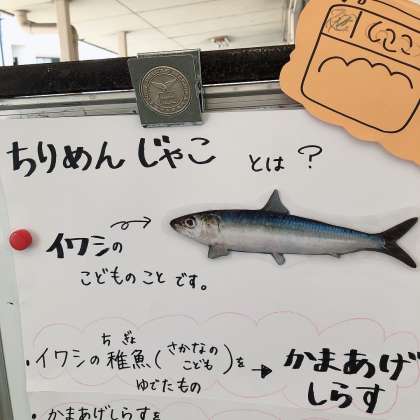 ちりめんじゃこ とは？
イワシの
こどものこと です。
・イワシの稚魚(さかなのこども)を
ちぎょ
ゆでたもの
→ かまあげ
しらす
・かまあげしらすを